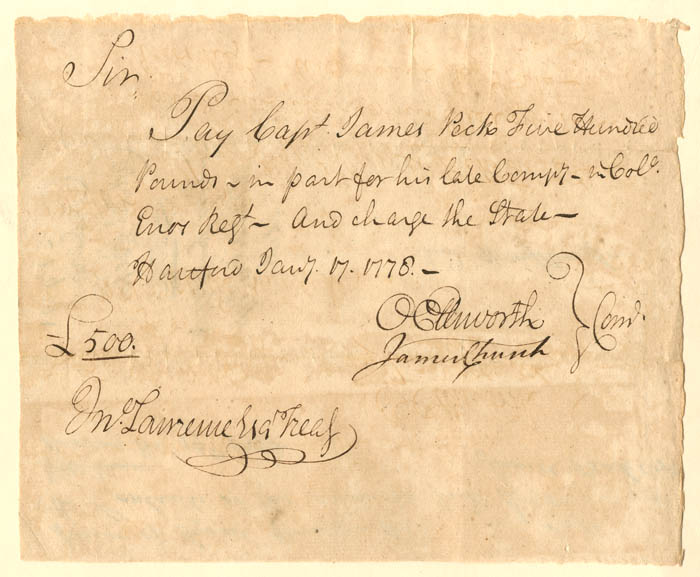 Sir,
Pay Capt. James Peck Five Hundred
Pounds – in part for his late Compy – in Colo.
Enos Regt – And charge the State –
Hartford Jany. 17. 1778. –
OEllsworth
James Church } Com.
£500.
Jno. Lawrence Esqr Treas